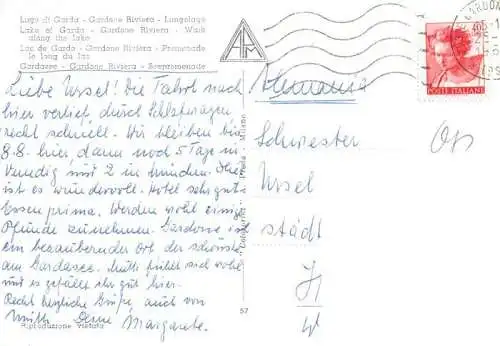 Lago di Garda - Gardone Riviera - Lungolago
Lake of Garda - Gardone Riviera - Walk
along the lake
Lac de Garde - Gardone Riviera - Promenade
le long du lac
Gardasee - Gardone Riviera - Seepromenade
Liebe Ursel! Die Fahrt nach
hier verlief, durch Schlafwagen,
recht schnell. Wir bleiben bis
8.8. hier, dann noch 5 Tage in
Venedig und 2 in München. Hier
ist es wundervoll. Hotel sehr gut
Essen prima. Werden wohl einige
Pfunde zunehmen. Gardone ist
ein bezaubernder Ort der schönste
am Gardasee. Mutti fühlt sich wohl
und es gefällt ihr gut hier.
Recht herzliche Grüße auch von
Mutti Deine Margarete.
Riproduzione Vietata
57
Milano
POSTE ITALIANE
Alemania
Schwester
Ursel
städt